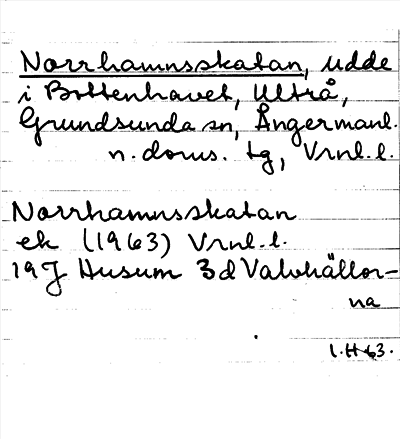 Norrhamnsskatan, udde
i Bottenhavet, Ultrå,
Grundsunda sn, Ångermanl.
n. doms. tg, Vrnl. l.
Norrhamnsskatan
ek (1963) Vrnl. l.
19J Husum 3d Valvhällor-
na
1.H 63.